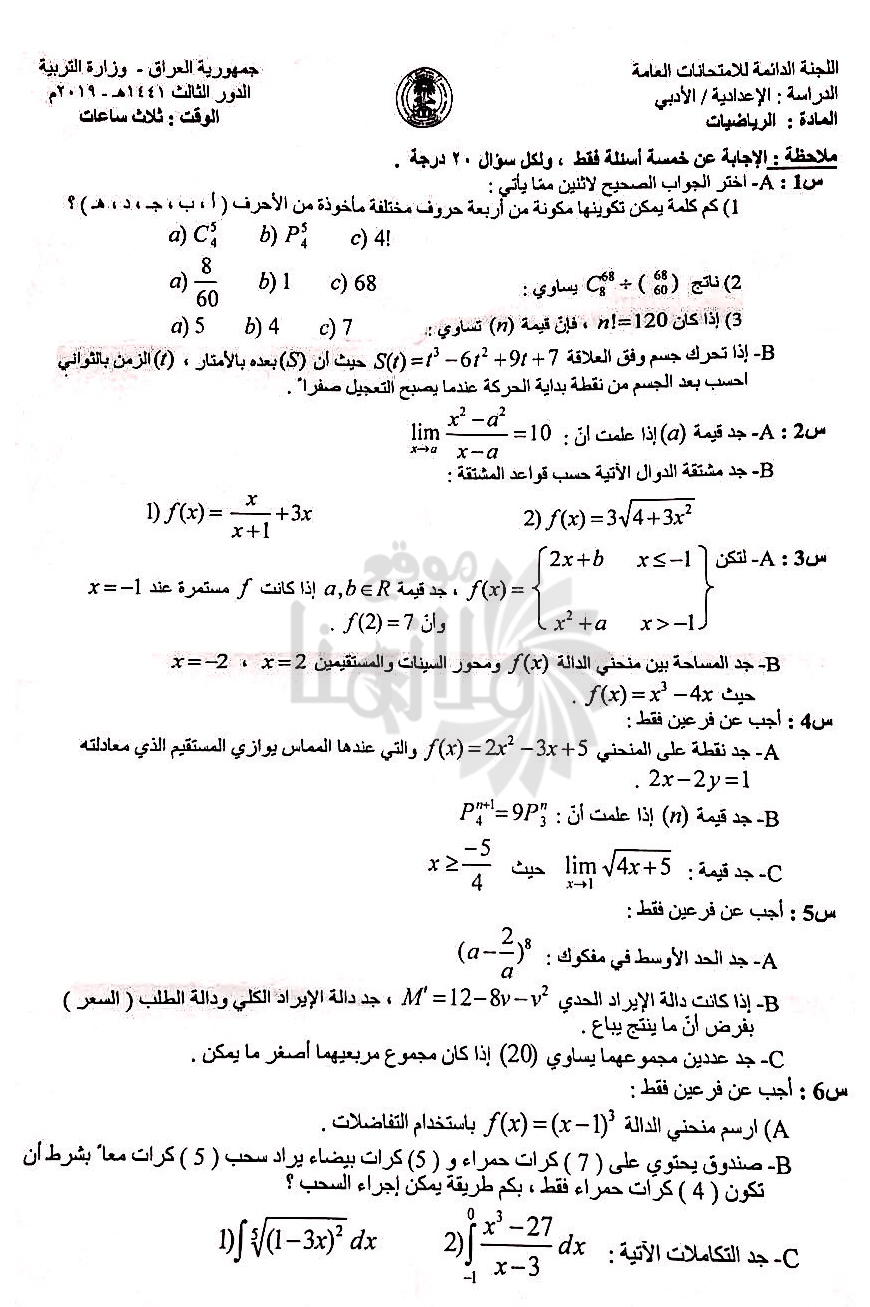 اللجنة الدائمة للامتحانات العامة
الدراسة : الإعدادية / الأدبي
المادة : الرياضيات
جمهورية العراق - وزارة التربية
الدور الثالث ١٤٤١هـ - ٢٠١٩م
الوقت : ثلاث ساعات
ملاحظة : الإجابة عن خمسة أسئلة فقط ، ولكل سؤال ٢٠ درجة .
س1 : A- اختر الجواب الصحيح لاثنين ممّا يأتي :
1) كم كلمة يمكن تكوينها مكونة من أربعة حروف مختلفة مأخوذة من الأحرف ( أ ، ب ، جـ ، د ، هـ ) ؟
a) C₄⁵ b) P₄⁵ c) 4!
2) ناتج (68 60) ÷ C₈⁶⁸ يساوي :
a) 8/60 b) 1 c) 68
3) إذا كان n!=120 ، فإنّ قيمة (n) تساوي :
a) 5 b) 4 c) 7
B- إذا تحرك جسم وفق العلاقة S(t)=t³−6t²+9t+7 حيث أن (S) بعده بالأمتار ، (t) الزمن بالثواني
احسب بعد الجسم من نقطة بداية الحركة عندما يصبح التعجيل صفراً .
س2 : A- جد قيمة (a) إذا علمت أنّ : lim x→a (x²−a²)/(x−a) =10
B- جد مشتقة الدوال الآتية حسب قواعد المشتقة :
1) f(x)= x/(x+1) +3x 2) f(x)=3√(4+3x²)
س3 : A- لتكن f(x)= { 2x+b x≤−1
x²+a x>−1 } ، جد قيمة a,b∈R إذا كانت f مستمرة عند x=−1
وأنّ f(2)=7 .
B- جد المساحة بين منحني الدالة f(x) ومحور السينات والمستقيمين x=2 ، x=−2
حيث f(x)=x³−4x .
س4 : أجب عن فرعين فقط :
A- جد نقطة على المنحني f(x)=2x²−3x+5 والتي عندها المماس يوازي المستقيم الذي معادلته
2x−2y=1 .
B- جد قيمة (n) إذا علمت أنّ : P₄ⁿ⁺¹=9P₃ⁿ
C- جد قيمة : lim x→1 √(4x+5) حيث x≥−5/4
س5 : أجب عن فرعين فقط :
A- جد الحد الأوسط في مفكوك : (a−2/a)⁸
B- إذا كانت دالة الإيراد الحدي M′=12−8v−v² ، جد دالة الإيراد الكلي ودالة الطلب ( السعر )
بفرض أنّ ما ينتج يباع .
C- جد عددين مجموعهما يساوي (20) إذا كان مجموع مربعيهما أصغر ما يمكن .
س6 : أجب عن فرعين فقط :
A) ارسم منحني الدالة f(x)=(x−1)³ باستخدام التفاضلات .
B- صندوق يحتوي على ( 7 ) كرات حمراء و ( 5) كرات بيضاء يراد سحب ( 5 ) كرات معاً بشرط أن
تكون ( 4 ) كرات حمراء فقط ، بكم طريقة يمكن إجراء السحب ؟
C- جد التكاملات الآتية : 1) ∫ ⁵√((1−3x)²) dx 2) ∫₋₁⁰ (x³−27)/(x−3) dx
موقع
ملازمنا